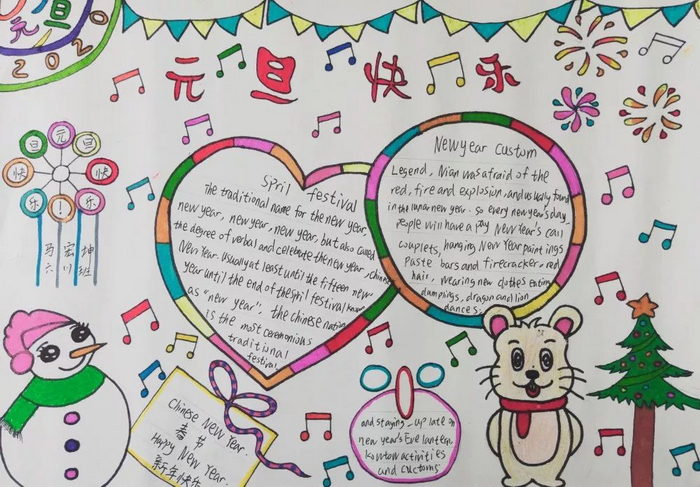 元旦
2020
元旦快乐
旦 元 旦
快 快
乐 ! 乐
马 宏 坤
六 川 班
Spril festival
The traditional name for the new year
new year, new year, new year, but also called
the degree of verbal and celebrate the new year, chinese
New Year. Usually at least until the fifteen new
year until the end of the spil festival known
as "new year". the chinese nation
is the most ceremonious
traditional
festival.
New year custom
Legend, Nian was afraid of the
red, fire and explosion, and usually found
in the lunar new year. so every new year's day,
people will have a pay New Year's call
couplets, hanging New Year paintings
Paste bars and firecracker, red
hair, wearing new clothes eating
dumpings, dragon and lion
dances.
Chinese New Year.
春节
Happy New Year.
新年快乐
and staying up late on
new year's Eve lantern
kowtow activities
and customs